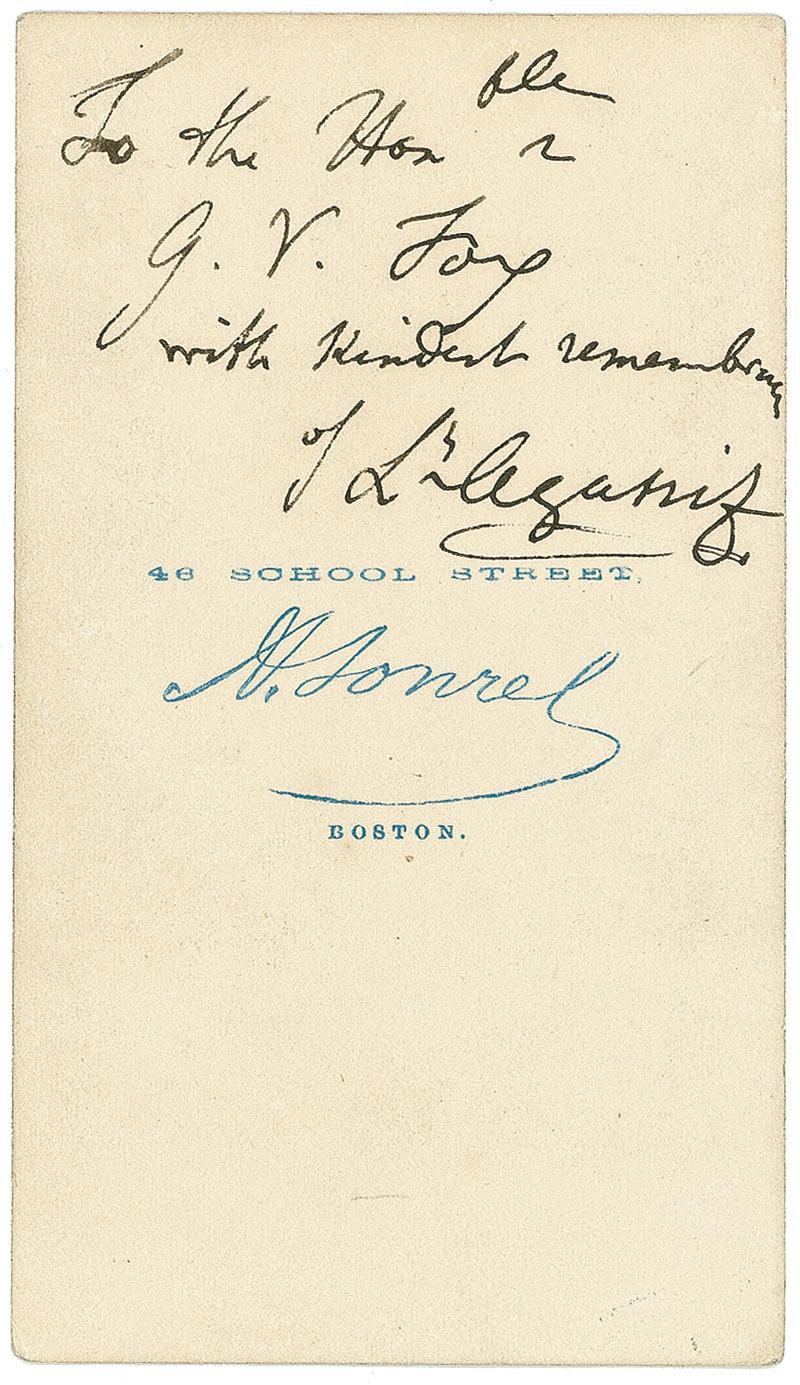 To the Hon<sup>ble</sup>
G. V. Fox
with kindest remembrance
of L<sup>s</sup> Agassiz
46 SCHOOL STREET,
A. Sonrel
BOSTON.